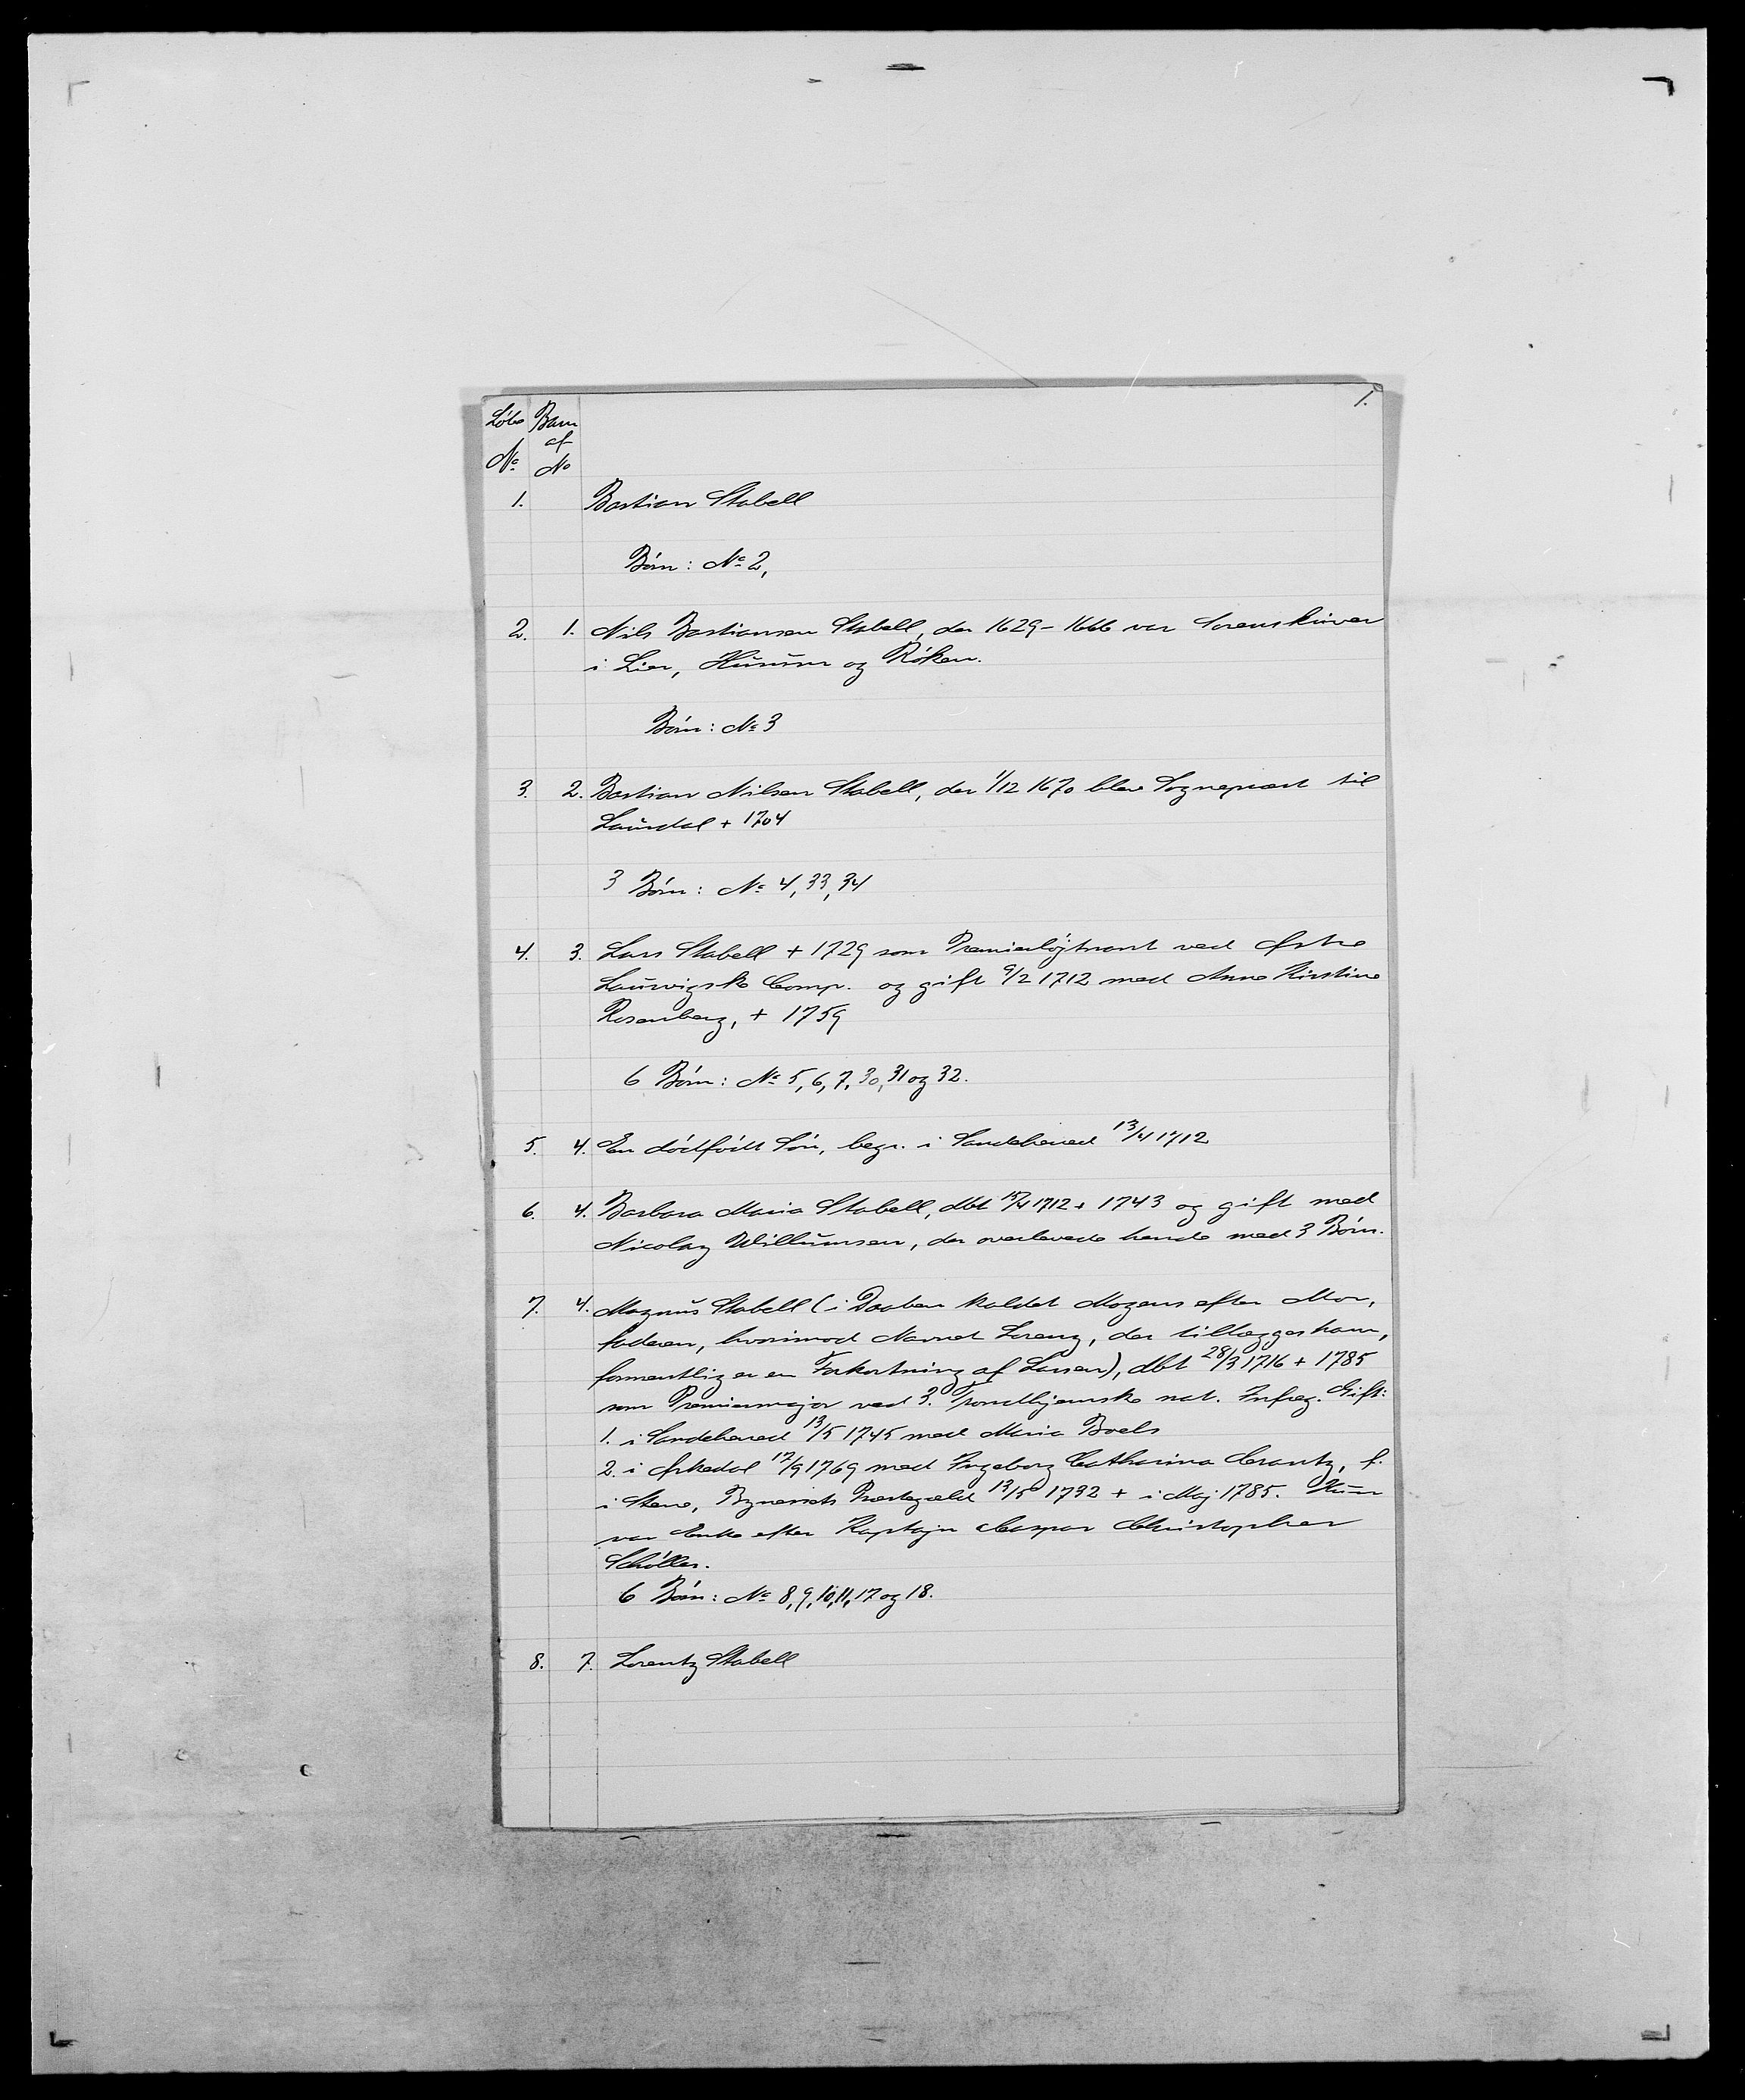 1.
Løbe Barn
af
No No
1. Bastian Stabell
Børn: No 2,
2. 1. Nils Bastiansen Stabell, der 1629-1666 var Sorenskriver
i Lier, Hurum og Røken.
Børn: No 3
3. 2. Bastian Nilsen Stabell, der 1/12 1670 blev Sognepræst til
Laurdal + 1704
3 Børn: No 4, 33, 34
4. 3. Lars Stabell + 1729 som Premierløjtnant ved østre
Laurvigske Comp. og gift 9/2 1712 med Anne Kirstine
Rosenberg, + 1759
6 Børn: No 5, 6, 7, 30, 31 og 32.
5. 4. En dødfødt Søn, begr. i Sandehered 13/4 1712
6. 4. Barbara Maria Stabell, dbt 15/4 1712 + 1743 og gift med
Nicolay Willumsen, der overlevede hende med 3 Børn.
7. 4. Magnus Stabell (i Daaben kaldet Mogens efter Mor,
faderen, hvorimod Navnet Lorenz, der tillægges ham,
formentlig er en Forkortning af Larsen), dbt 28/3 1716 + 1785
som Premiermajor ved 3. Trondhjemske nat. Infreg. Gift:
1. i Sandehered 13/5 1745 med Maria Boels
2. i Ørkedal 17/9 1769 med Ingeborg Catharina Crantz, f.
i Stene, Bynessets Prestegæld 13/5 1732 + i Maj 1785. Hun
var Enke efter Kaptajn Caspar Christopher
Schøller.
6 Børn: No 8, 9, 10, 11, 17 og 18.
8. 7. Lorentz Stabell